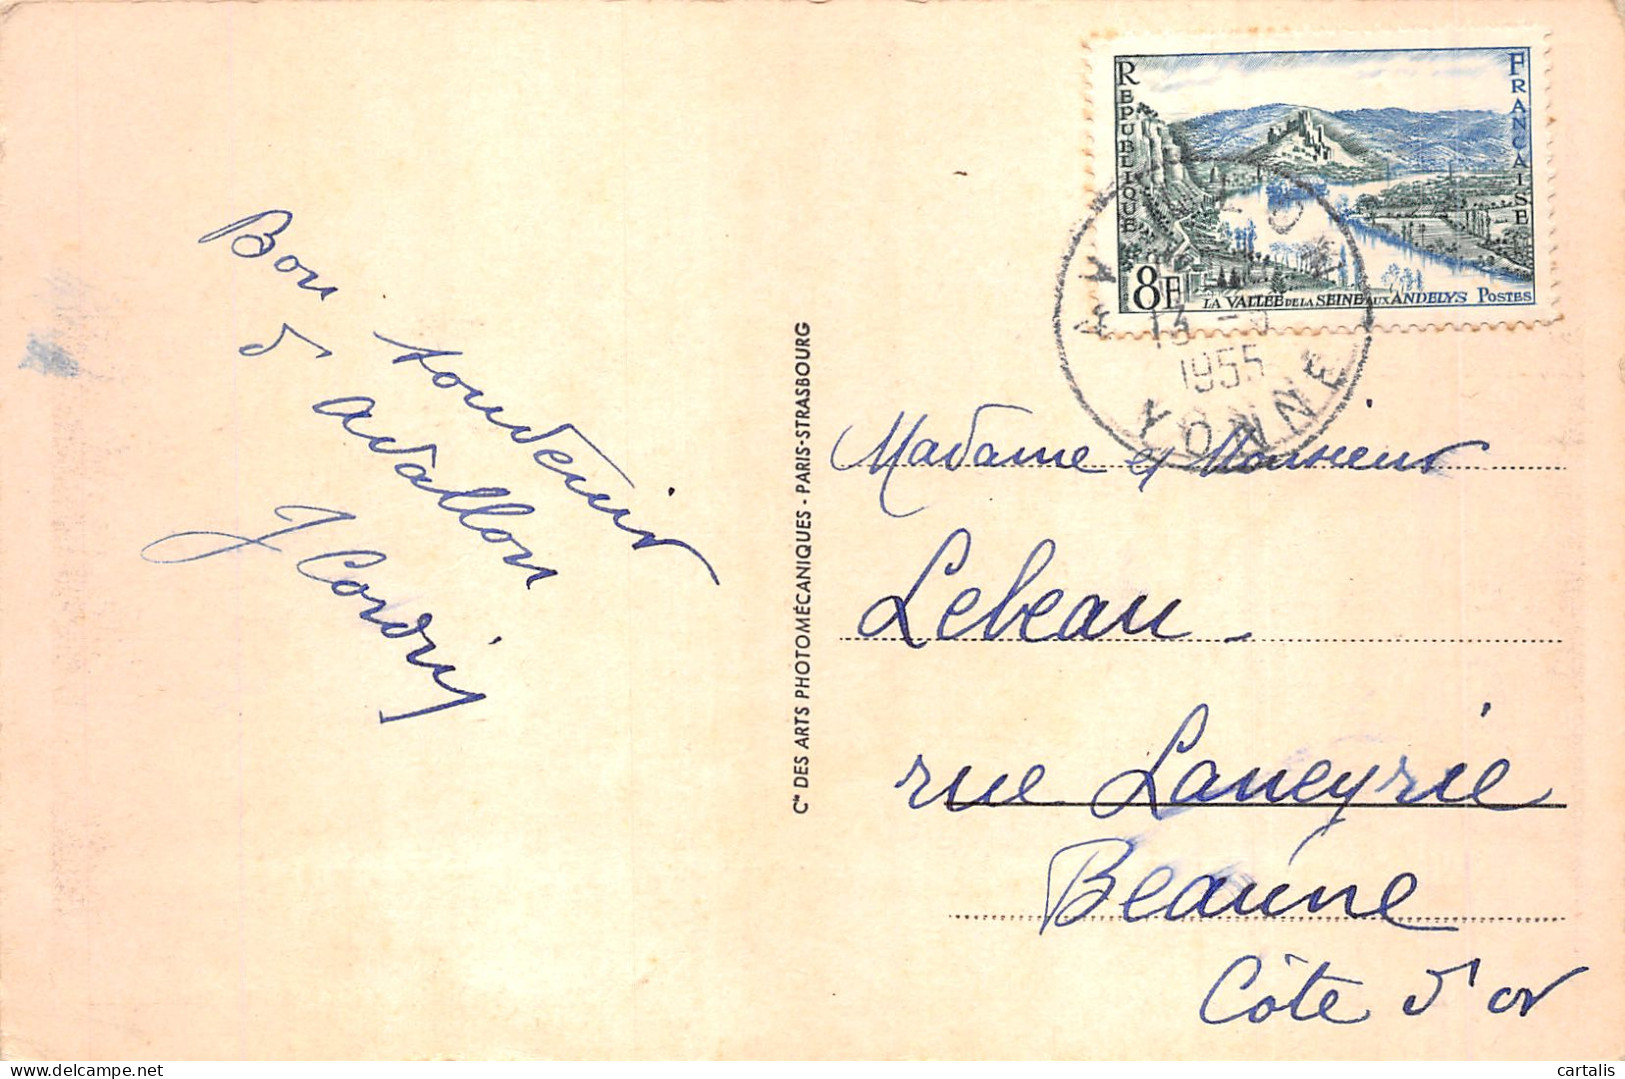 Bon
souvenir
d'avallon
J Cordin
Cie DES ARTS PHOTOMÉCANIQUES - PARIS-STRASBOURG
REPUBLIQUE
FRANCAISE
8F
LA VALLÉE DE LA SEINE AUX ANDELYS POSTES
AVALLON
13 -
1955
YONNE
Madame et Monsieur
Lebeau -
rue Laneyrie
Beaune
Côte d'or
cartalis
delcampe.net